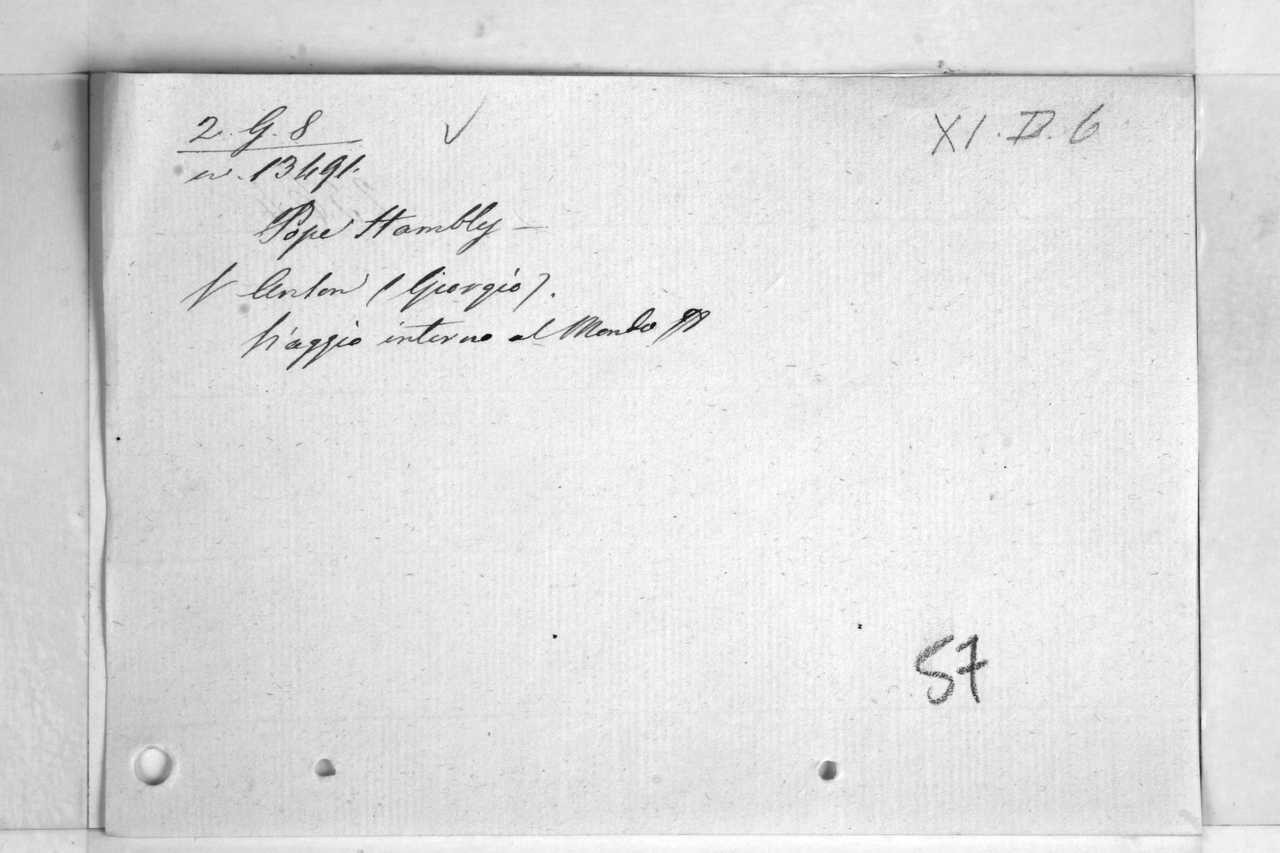 2. G. 8
XI. D. 6
n. 13491.
Pope Hambly —
V Anson (Giorgio).
Viaggio intorno al Mondo
57